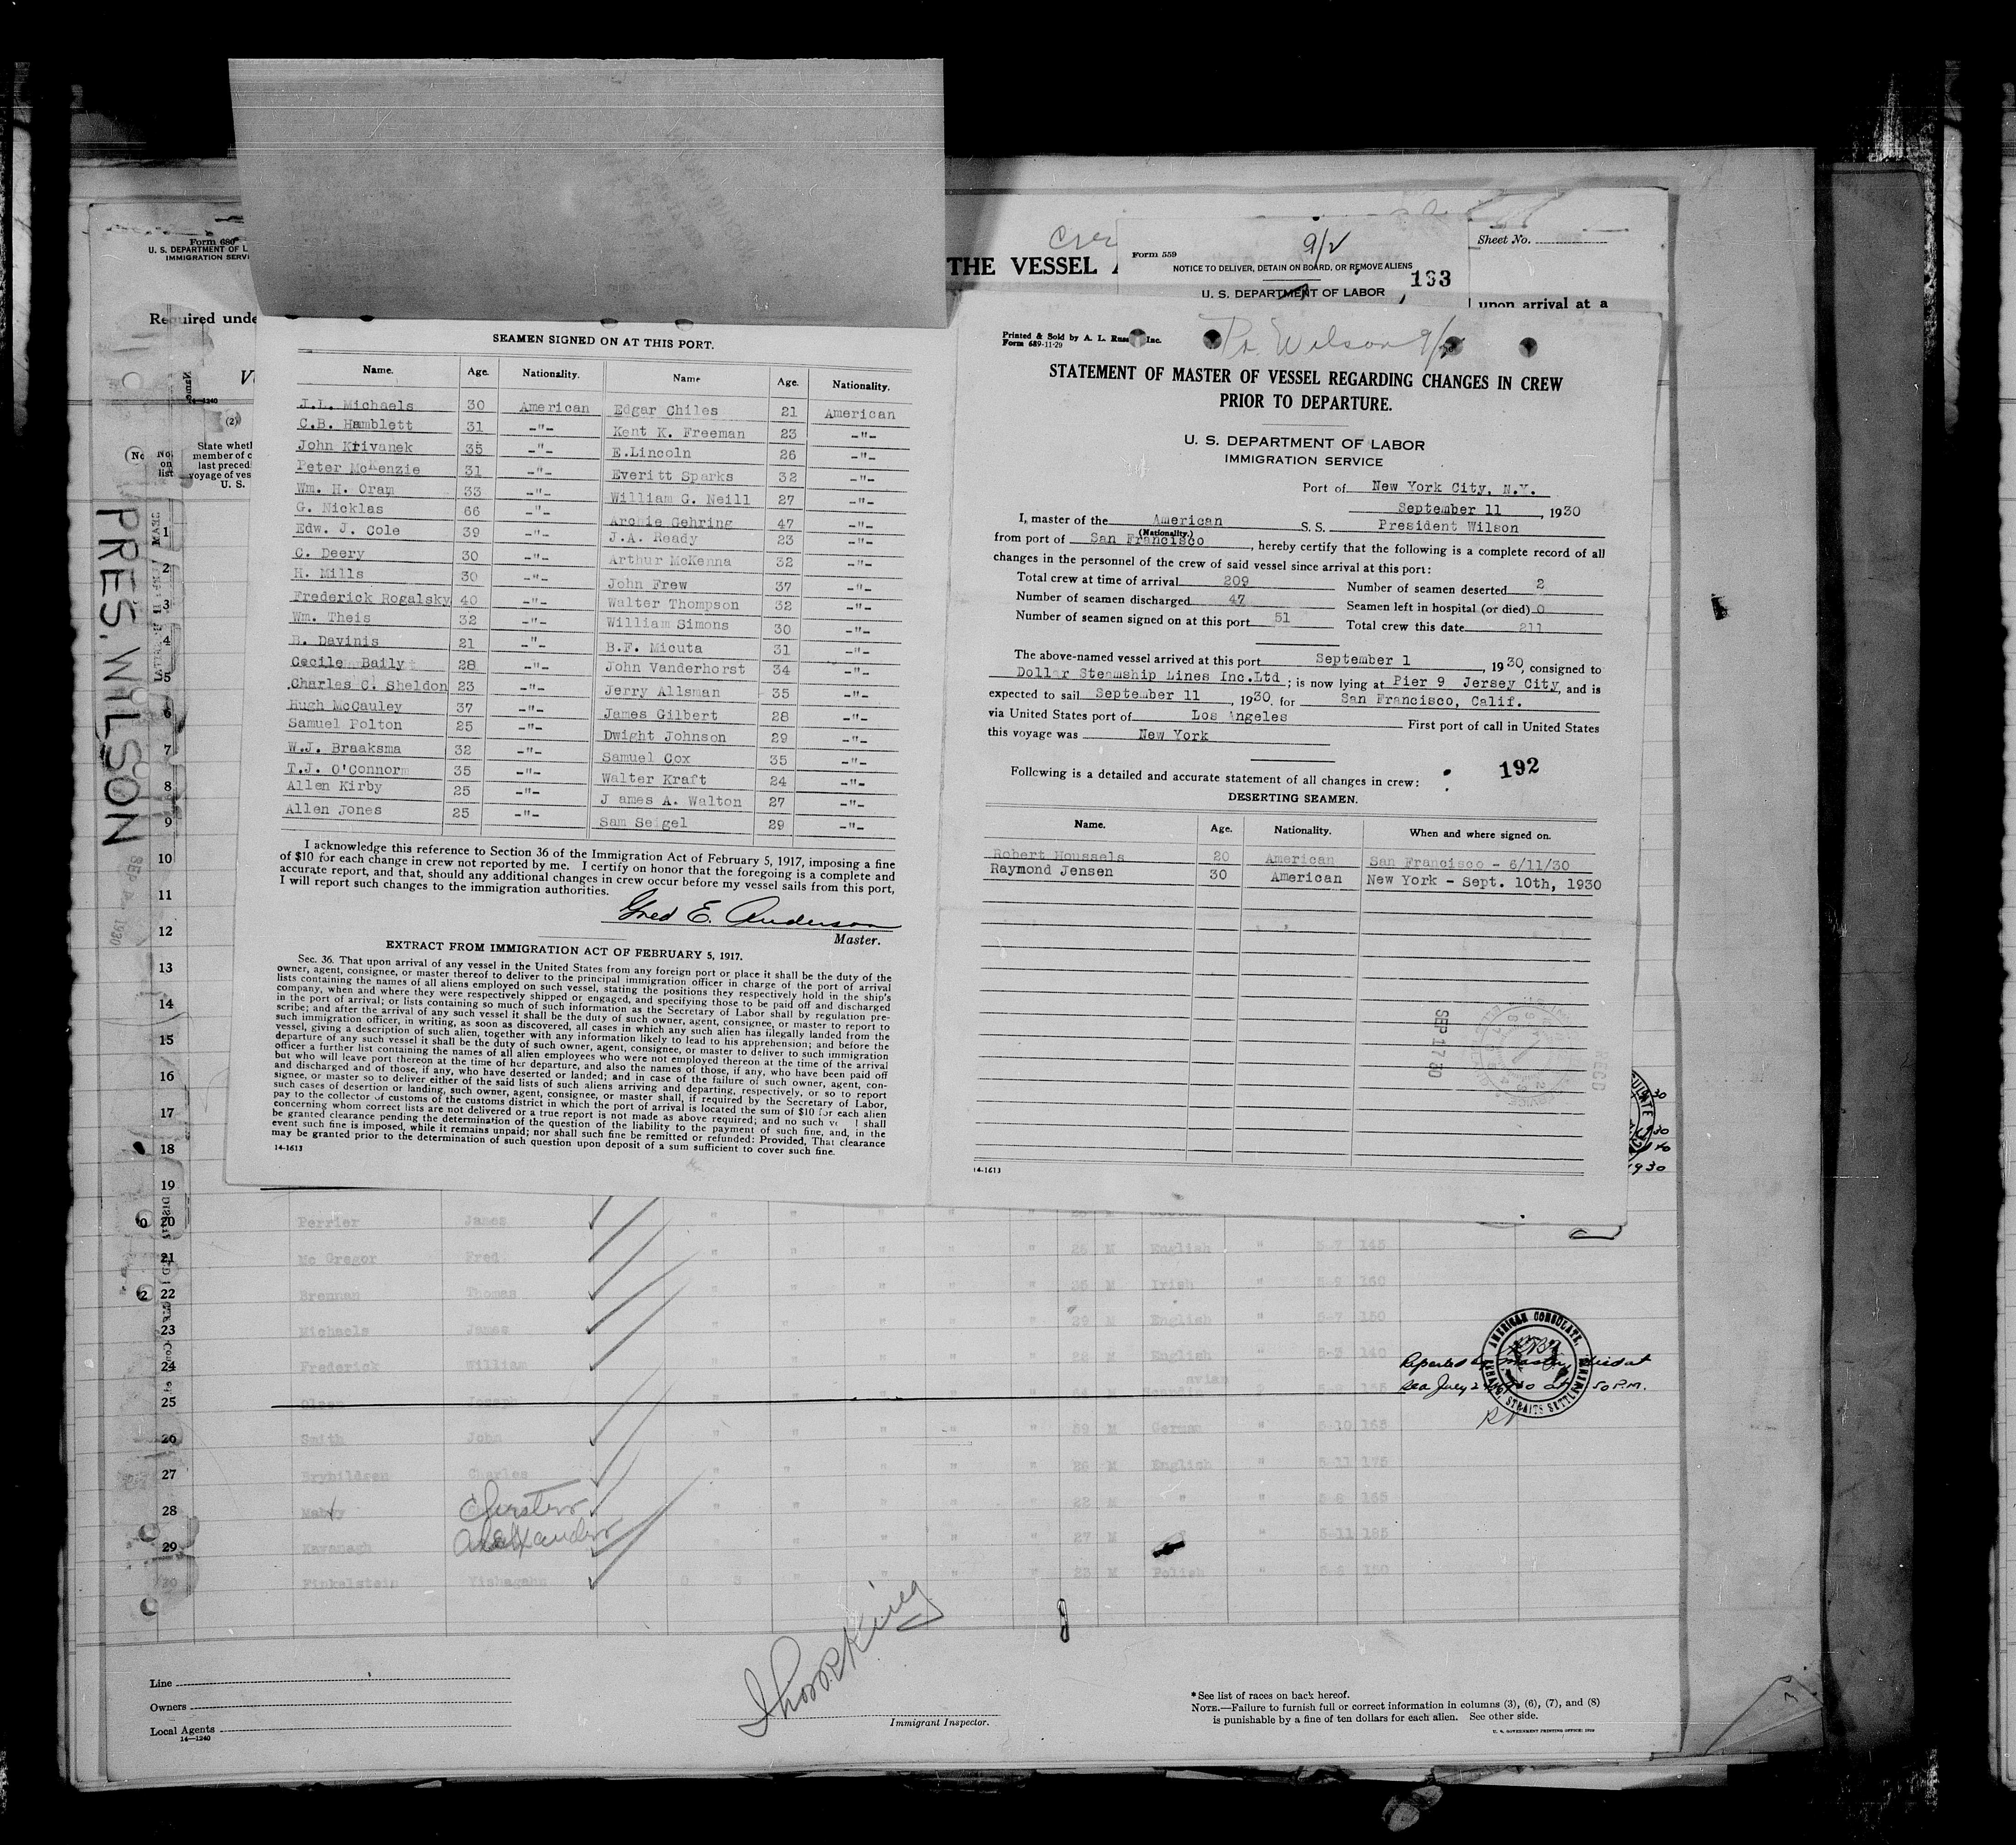 Form 680
U. S. DEPARTMENT OF L
IMMIGRATION SERVI
THE VESSEL A
Required unde
Sheet No.
upon arrival at a
Form 559
9/2
NOTICE TO DELIVER, DETAIN ON BOARD, OR REMOVE ALIENS
U. S. DEPARTMENT OF LABOR
193
PRES. WILSON
(2)
State wheth
member of c
last preced
voyage of ves
U. S.
No.
on
list
SEAMEN SIGNED ON AT THIS PORT.
Name. Age. Nationality. Name Age. Nationality.
J.L. Michaels 30 American Edgar Chiles 21 American
C.B. Hamblett 31 -"- Kent K. Freeman 23 -"-
John Krivanek 35 -"- E.Lincoln 26 -"-
Peter McKenzie 31 -"- Everitt Sparks 32 -"-
Wm. H. Oram 33 -"- William G. Neill 27 -"-
G. Nicklas 66 -"- Archie Gehring 47 -"-
Edw. J. Cole 39 -"- J.A. Ready 23 -"-
C. Deery 30 -"- Arthur McKenna 32 -"-
H. Mills 30 -"- John Frew 37 -"-
Frederick Rogalsky 40 -"- Walter Thompson 32 -"-
Wm. Theis 32 -"- William Simons 30 -"-
B. Davinis 21 -"- B.F. Micuta 31 -"-
Cecile Baily 28 -"- John Vanderhorst 34 -"-
Charles C. Sheldon 23 -"- Jerry Allsman 35 -"-
Hugh McCauley 37 -"- James Gilbert 28 -"-
Samuel Polton 25 -"- Dwight Johnson 29 -"-
W.J. Braaksma 32 -"- Samuel Cox 35 -"-
T.J. O'Connor 35 -"- Walter Kraft 24 -"-
Allen Kirby 25 -"- J ames A. Walton 27 -"-
Allen Jones 25 -"- Sam Seigel 29 -"-
I acknowledge this reference to Section 36 of the Immigration Act of February 5, 1917, imposing a fine
of $10 for each change in crew not reported by me. I certify on honor that the foregoing is a complete and
accurate report, and that, should any additional changes in crew occur before my vessel sails from this port,
I will report such changes to the immigration authorities.
Fred E. Anderson
Master.
EXTRACT FROM IMMIGRATION ACT OF FEBRUARY 5, 1917.
Sec. 36. That upon arrival of any vessel in the United States from any foreign port or place it shall be the duty of the
owner, agent, consignee, or master thereof to deliver to the principal immigration officer in charge of the port of arrival
lists containing the names of all aliens employed on such vessel, stating the positions they respectively hold in the ship's
company, when and where they were respectively shipped or engaged, and specifying those to be paid off and discharged
in the port of arrival; or lists containing so much of such information as the Secretary of Labor shall by regulation pre-
scribe; and after the arrival of any such vessel it shall be the duty of such owner, agent, consignee, or master to report to
such immigration officer, in writing, as soon as discovered, all cases in which any such alien has ilegally landed from the
vessel, giving a description of such alien, together with any information likely to lead to his apprehension; and before the
departure of any such vessel it shall be the duty of such owner, agent, consignee, or master to deliver to such immigration
officer a further list containing the names of all alien employees who were not employed thereon at the time of the arrival
but who will leave port thereon at the time of her departure, and also the names of those, if any, who have been paid off
and discharged and of those, if any, who have deserted or landed; and in case of the failure of such owner, agent, con-
signee, or master so to deliver either of the said lists of such aliens arriving and departing, respectively, or so to report
such cases of desertion or landing, such owner, agent, consignee, or master shall, if required by the Secretary of Labor,
pay to the collector of customs of the customs district in which the port of arrival is located the sum of $10 for each alien
concerning whom correct lists are not delivered or a true report is not made as above required; and no such ve l shall
be granted clearance pending the determination of the question of the liability to the payment of such fine, and, in the
event such fine is imposed, while it remains unpaid; nor shall such fine be remitted or refunded: Provided, That clearance
may be granted prior to the determination of such question upon deposit of a sum sufficient to cover such fine.
14-1613
Printed & Sold by A. L. Russ Inc.
Form 689-11-29
Pr. Wilson 9/
STATEMENT OF MASTER OF VESSEL REGARDING CHANGES IN CREW
PRIOR TO DEPARTURE.
U. S. DEPARTMENT OF LABOR
IMMIGRATION SERVICE
Port of New York City, N.Y.
September 11, 1930
I, master of the American S. S. President Wilson
(Nationality.)
from port of San Francisco, hereby certify that the following is a complete record of all
changes in the personnel of the crew of said vessel since arrival at this port:
Total crew at time of arrival 209 Number of seamen deserted 2
Number of seamen discharged 47 Seamen left in hospital (or died) 0
Number of seamen signed on at this port 51 Total crew this date 211
The above-named vessel arrived at this port September 1, 1930, consigned to
Dollar Steamship Lines Inc.Ltd; is now lying at Pier 9 Jersey City, and is
expected to sail September 11, 1930. for San Francisco, Calif.
via United States port of Los Angeles First port of call in United States
this voyage was New York
192
Following is a detailed and accurate statement of all changes in crew:
DESERTING SEAMEN.
Name. Age. Nationality. When and where signed on.
Robert Houssels 20 American San Francisco - 6/11/30
Raymond Jensen 30 American New York - Sept. 10th, 1930
SEP 17 30
REC'D
14-1613
1
2
3
4
5
6
7
8
9
10
11
12
13
14
15
16
17
18
19
20 Perrier James
21 Mc Gregor Fred " " " " " 26 M English " 5-7 145
22 Brennan Thomas " " " " " 36 M Irish " 5-9 160
23 Michaels James " " " " " 29 M English " 5-7 150
24 Frederick William " " " " " 22 M English " 5-3 140
25 Olsen Joseph
26 Smith John " " " " " 39 M German " 5-10 165
27 Brybildsen Charles " " " " " 26 M English " 5-11 175
28 Mabry Chester " " " " " 22 M " " 5-8 165
29 Kavanagh Alexander " " " " " 27 M " 5-11 185
30 Finkelstein 23 M Polish " 150
Reported by Master died at
sea July 2 1930 at 50 P.M.
AMERICAN CONSULATE,
PENANG, STRAITS SETTLEMENTS
Line
Owners
Local Agents
14-1240
Immigrant Inspector.
*See list of races on back hereof.
NOTE.—Failure to furnish full or correct information in columns (3), (6), (7), and (8)
is punishable by a fine of ten dollars for each alien. See other side.
U. S. GOVERNMENT PRINTING OFFICE: 1929